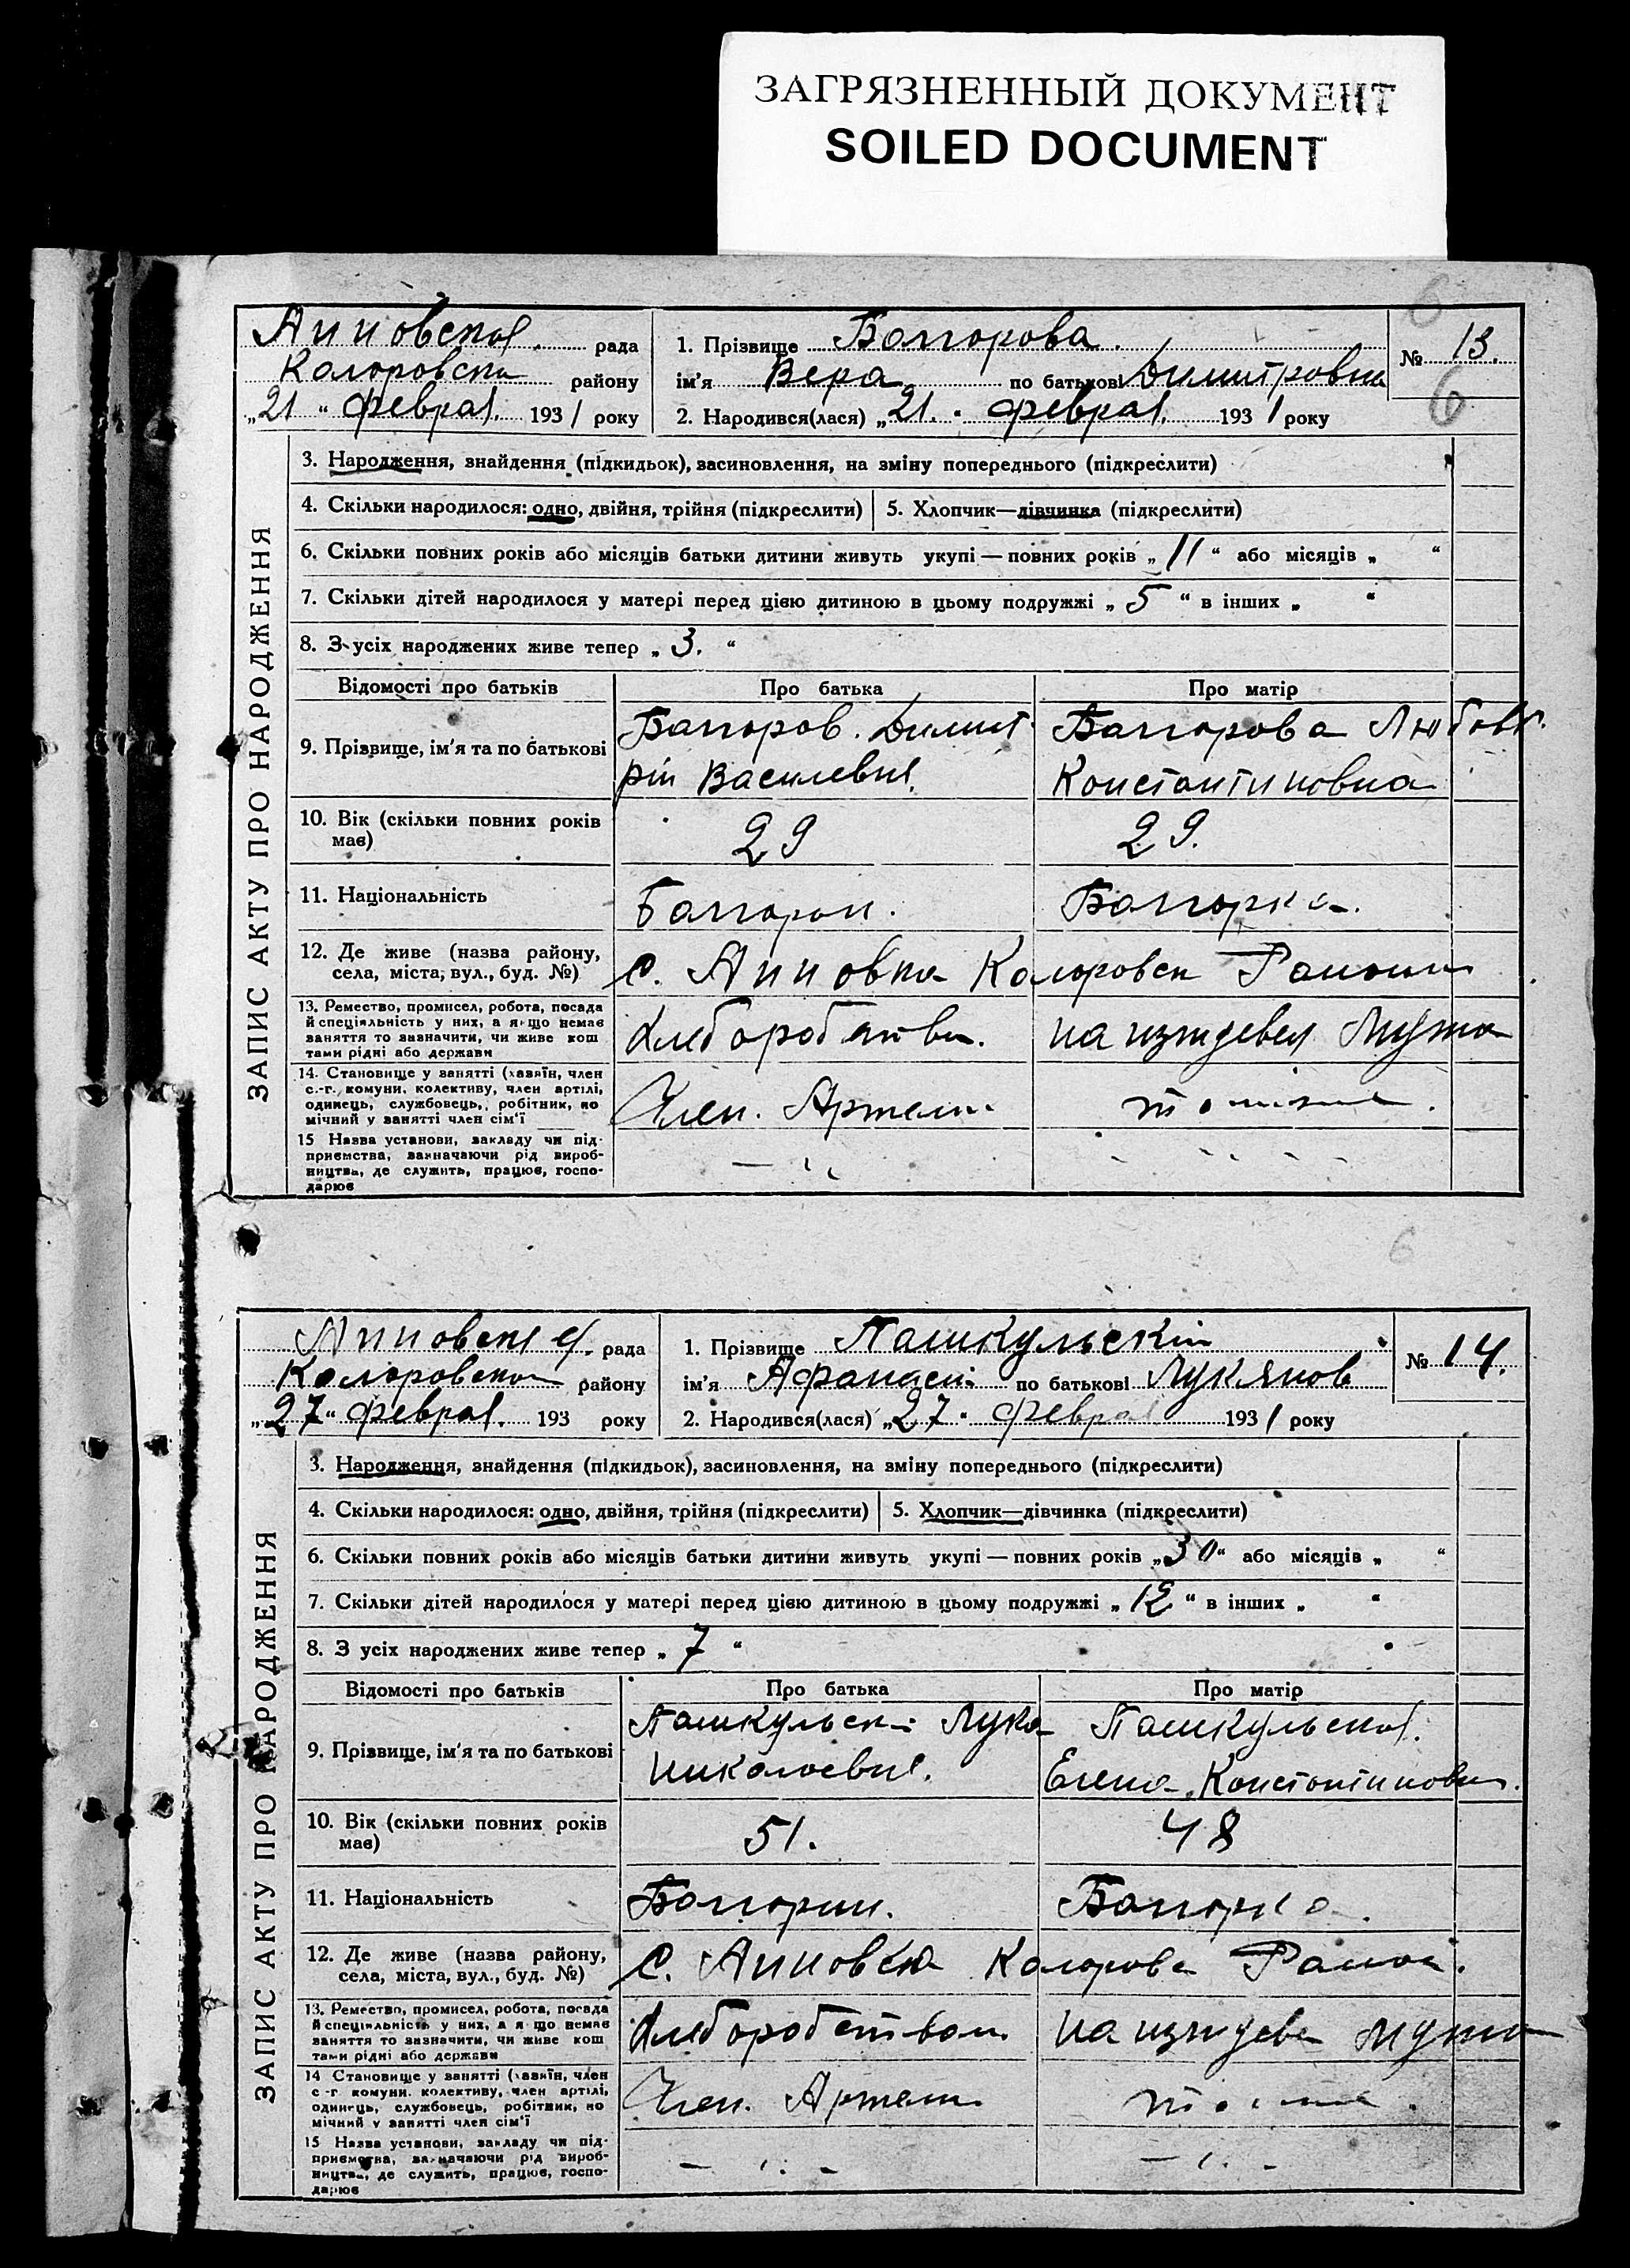 ЗАГРЯЗНЕННЫЙ ДОКУМЕНТ
SOILED DOCUMENT
6
Анновская рада
Коларовски району
„21“ Феврал. 1931 року
1. Прізвище Болгорова.
ім'я Вера по батькові Димитровна
2. Народився(лася) „21.“ Феврал. 1931 року
№ 13.
6
ЗАПИС АКТУ ПРО НАРОДЖЕННЯ
3. Народження, знайдення (підкидьок), засиновлення, на зміну попереднього (підкреслити)
4. Скільки народилося: одно, двійня, трійня (підкреслити) 5. Хлопчик—дівчинка (підкреслити)
6. Скільки повних років або місяців батьки дитини живуть укупі — повних років „11“ або місяців „ “
7. Скільки дітей народилося у матері перед цією дитиною в цьому подружжі „5“ в інших „ “
8. З усіх народжених живе тепер „3.“
Відомості про батьків Про батька Про матір
9. Прізвище, ім'я та по батькові
Болгоров. Димит
рій Василевич.
Болгорова Любовь.
Константиновна
10. Вік (скільки повних років має) 29 29.
11. Національність Болгорин. Болгорка.
12. Де живе (назва району,
села, міста, вул., буд. №) с. Анновка Коларовск Района
13. Ремество, промисел, робота, посада
й спеціяльність у них, а якщо немає
заняття то зазначити, чи живе кош
тами рідні або держави
на изждевел Мужа
14. Становище у занятті (хазяїн, член
с.-г. комуни, колективу, член артілі,
одинець, службовець, робітник, по
мічний у занятті член сім'ї
Член. Артели
15 Назва установи, закладу чи під-
приємства, зазначаючи рід вироб-
ництва, де служить, працює, госпо-
дарює
6
Анновская. рада
Коларовского району
„27“ Феврал. 193 року
1. Прізвище Пашкульскій
ім'я Афанасій по батькові Лукянов
2. Народився(лася) „27“ Феврал 1931 року
№ 14.
ЗАПИС АКТУ ПРО НАРОДЖЕННЯ
3. Народження, знайдення (підкидьок), засиновлення, на зміну попереднього (підкреслити)
4. Скільки народилося: одно, двійня, трійня (підкреслити) 5. Хлопчик—дівчинка (підкреслити)
6. Скільки повних років або місяців батьки дитини живуть укупі — повних років „30“ або місяців „ “
7. Скільки дітей народилося у матері перед цією дитиною в цьому подружжі „12“ в інших „ “
8. З усіх народжених живе тепер „7“
Відомості про батьків Про батька Про матір
9. Прізвище, ім'я та по батькові
Пашкульскі Лука
Николаевич.
Пашкульская.
Елена Константиновн.
10. Вік (скільки повних років має) 51. 48
11. Національність Болгорин. Болгорка.
12. Де живе (назва району,
села, міста, вул., буд. №) с. Анновка Коларовс Район.
13. Ремество, промисел, робота, посада
й спеціяльність у них, а якщо немає
заняття то зазначити, чи живе кош
тами рідні або держави
Хлеборобством на изждеве мужа
14 Становище у занятті (хазяїн, член
с-г комуни, колективу, член артілі,
одинець, службовець, робітник, по
мічний у занятті член сім'ї
Член. Артели
15 Назва установи, закладу чи під-
приємства, зазначаючи рід вироб-
ництва, де служить, працює, госпо-
дарює